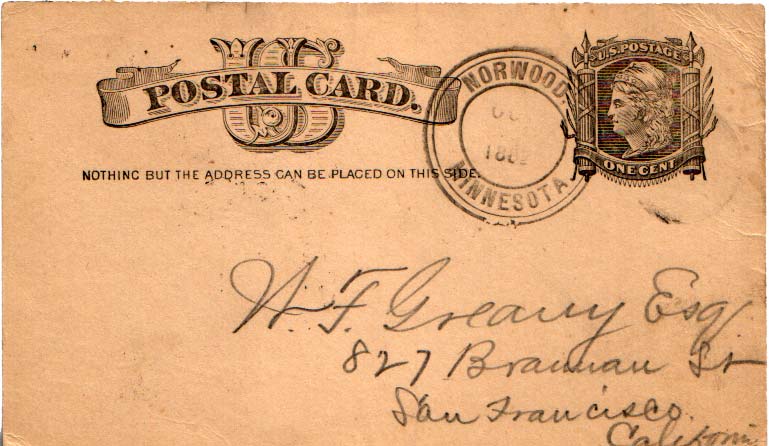 US
POSTAL CARD.
NOTHING BUT THE ADDRESS CAN BE PLACED ON THIS SIDE.
NORWOOD.
188
MINNESOTA
U.S. POSTAGE
ONE CENT
W. F. Greany Esq
827 Brannan St
San Francisco.
California